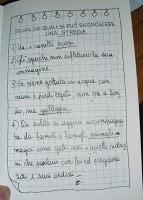 SEGNI DAI QUALI SI PUÒ RICONOSCERE
UNA STREGA
1) Ha i capelli rossi.
2) Gli specchi non riflettono la sua
immagine.
3) Se viene gettata in acqua con
mani e piedi legati non va a fon
do, ma galleggia.
4) Di solito si aggira accompagna
ta da famuli o famigli, animali
magici come gatti neri o uccelli nottur
ni che parlano con lei ed eseguono
tutti i suoi ordini.